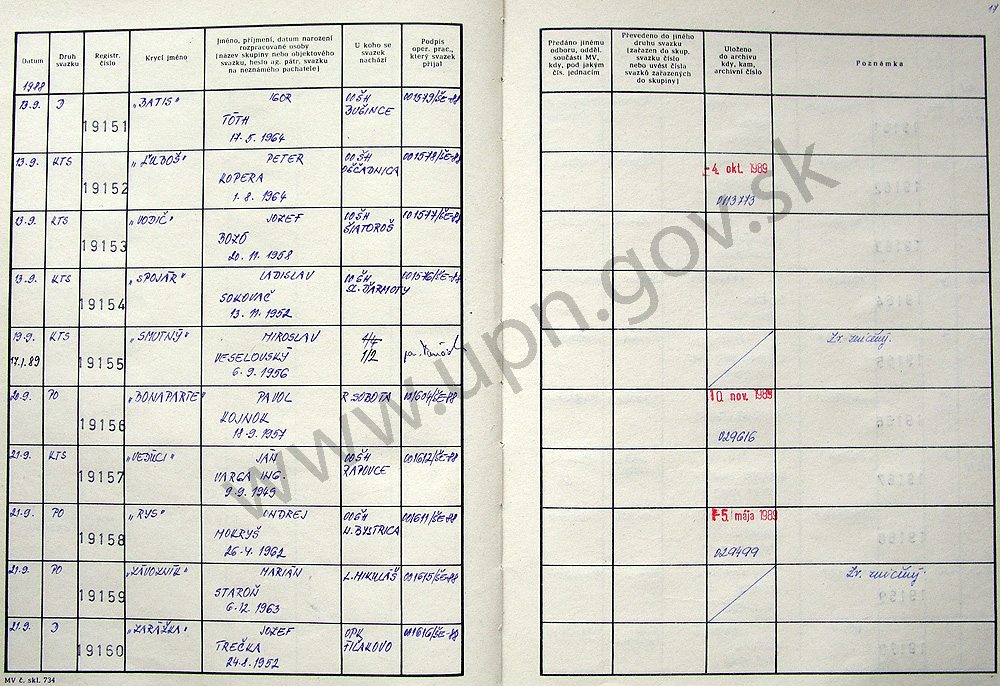 17
Datum
Druh svazku
Registr. číslo
Krycí jméno
Jméno, příjmení, datum narození
rozpracované osoby
(název skupiny nebo objektového
svazku, heslo ag. pátr. svazku
na neznámého pachatele)
U koho se
svazek
nachází
Podpis
oper. prac.,
který svazek
přijal
Předáno jinému
odboru, odděl.
součásti MV,
kdy, pod jakým
čís. jednacím
Převedeno do jiného
druhu svazku
(zařazen do skup.
svazku číslo
nebo uvést čísla
svazků zařazených
do skupiny)
Uloženo
do archivu
kdy, kam,
archivní číslo
Poznámka
1988
13.9. D 19151 „BATIS" IGOR
TÓTH
17.5.1964
OO ŠH
BUŠINCE
001579/ŠE-88
13.9. KTS 19152 PETER
KOPERA
1.8.1964
OO ŠH
OŠČADNICA
001578/ŠE-88
-4. okt. 1989
013773
13.9. KTS 19153 „VODIČ" JOZEF
BOZÓ
20.11.1958
OO ŠH
ŠIATOROŠ
001577/ŠE-88
13.9. KTS 19154 „SPOJÁR" LADISLAV
SOKOVAČ
13.11.1952
OO ŠH
SL. ĎARMOTY
001576/ŠE-88
19.9. KTS 19155 „SMUTNÝ" MIROSLAV
17.1.89
VESELOVSKÝ
6.9.1956
1/2
Zv. zničený.
20.9. PO 19156 „BONAPARTE" PAVOL
KOJNOK
18.9.1957
R. SOBOTA
001604/ŠE-88
10. nov. 1989
029616
21.9. KTS 19157 „VEDÚCI" JÁN
VARGA ING.
9.9.1949
OO ŠH
RAPOVCE
001612/ŠE-88
21.9. PO 19158 „RYS" ONDREJ
MOKRÝŠ
26.4.1962
001611/ŠE-88
-5. mája 1989
029499
21.9. PO 19159 „ZÁVOZNÍK" MARIÁN
STAROŇ
6.12.1963
L. MIKULÁŠ
001615/ŠE-88
Zv. zničený.
21.9. D 19160 „ZARÁŽKA" JOZEF
TREČKA
24.8.1952
OPK
FIĽAKOVO
001616/ŠE-88
MV č. skl. 734
www.upn.gov.sk